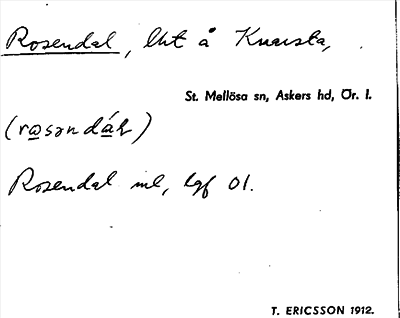 Rosendal, lht å Knarsta,
St. Mellösa sn, Askers hd, Ör. l.
(rosəndáɫ)
Rosendal ml, lgf 01.
T. ERICSSON 1912.